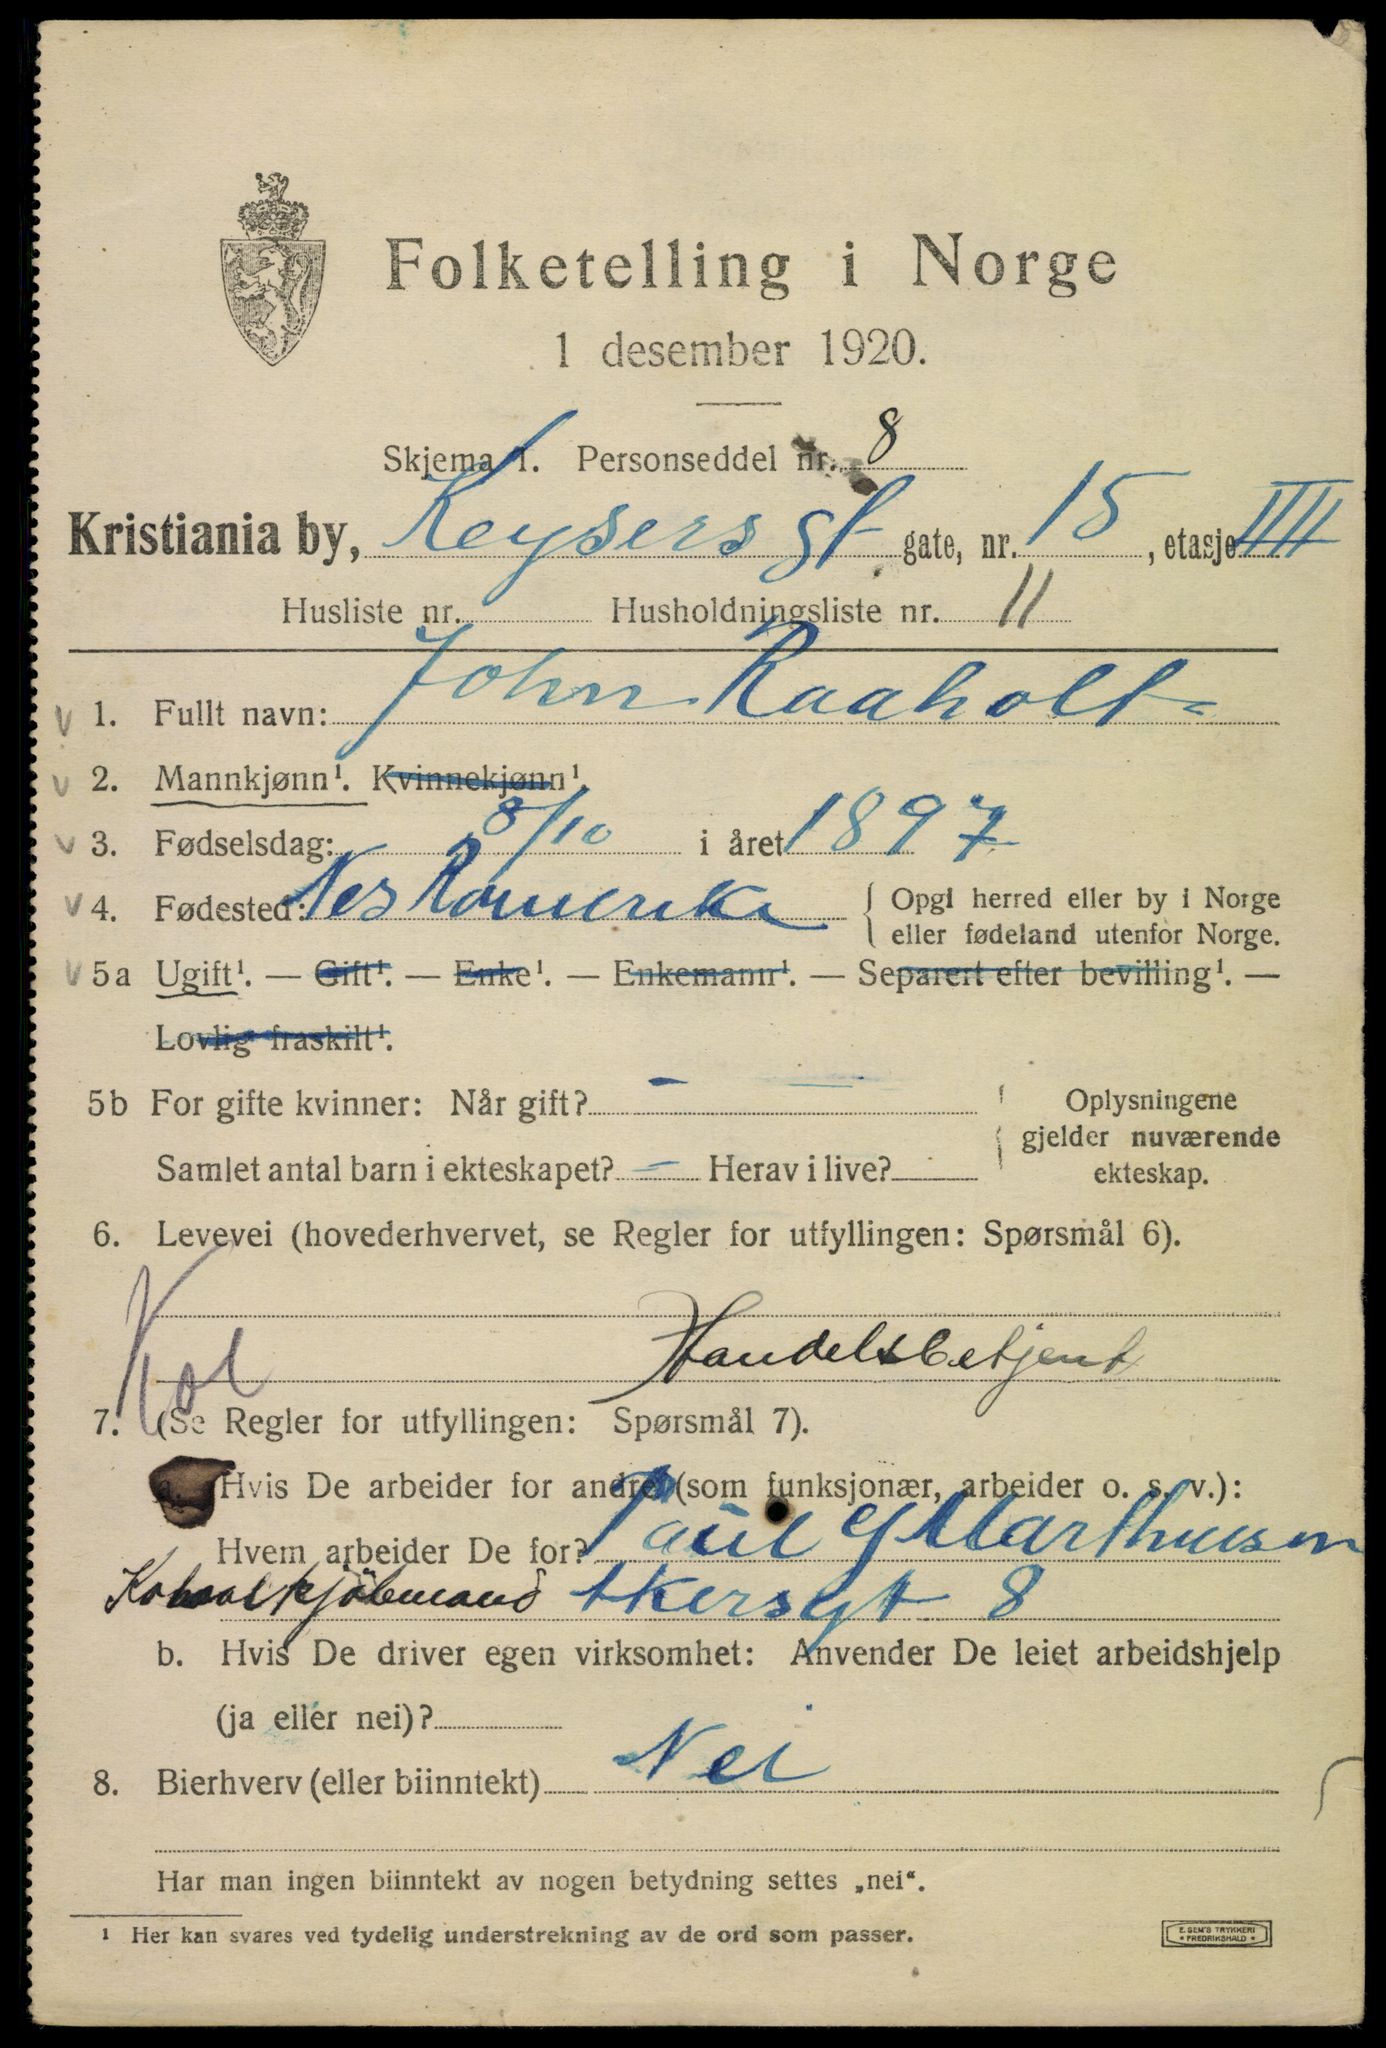 Folketelling i Norge
1 desember 1920.
Skjema 1. Personseddel nr. 8
Kristiania by, Keysers gt gate, nr. 15, etasje IIII
Husliste nr. Husholdningsliste nr. 11
v 1. Fullt navn: John Raaholt
v 2. Mannkjønn¹. Kvinnekjønn¹.
v 3. Fødselsdag: 8/10 i året 1897
v 4. Fødested: Nes Romerike { Opgi herred eller by i Norge
eller fødeland utenfor Norge.
v 5a Ugift¹. — Gift¹. — Enke¹. — Enkemann¹. — Separert efter bevilling¹. —
Lovlig fraskilt¹.
5b For gifte kvinner: Når gift? — Oplysningene
gjelder nuværende
Samlet antal barn i ekteskapet? — Herav i live?
ekteskap.
6. Levevei (hovederhvervet, se Regler for utfyllingen: Spørsmål 6).
Kol
Handelsbetjent
7. (Se Regler for utfyllingen: Spørsmål 7).
a. Hvis De arbeider for andre (som funksjonær, arbeider o. s. v.):
Hvem arbeider De for? Paul G Marthuson
Akersgt 8
b. Hvis De driver egen virksomhet: Anvender De leiet arbeidshjelp
(ja eller nei)?
8. Bierhverv (eller biinntekt) Nei
Har man ingen biinntekt av nogen betydning settes „nei“.
¹ Her kan svares ved tydelig understrekning av de ord som passer.
E. SEM'S TRYKKERI
* FREDRIKSHALD *